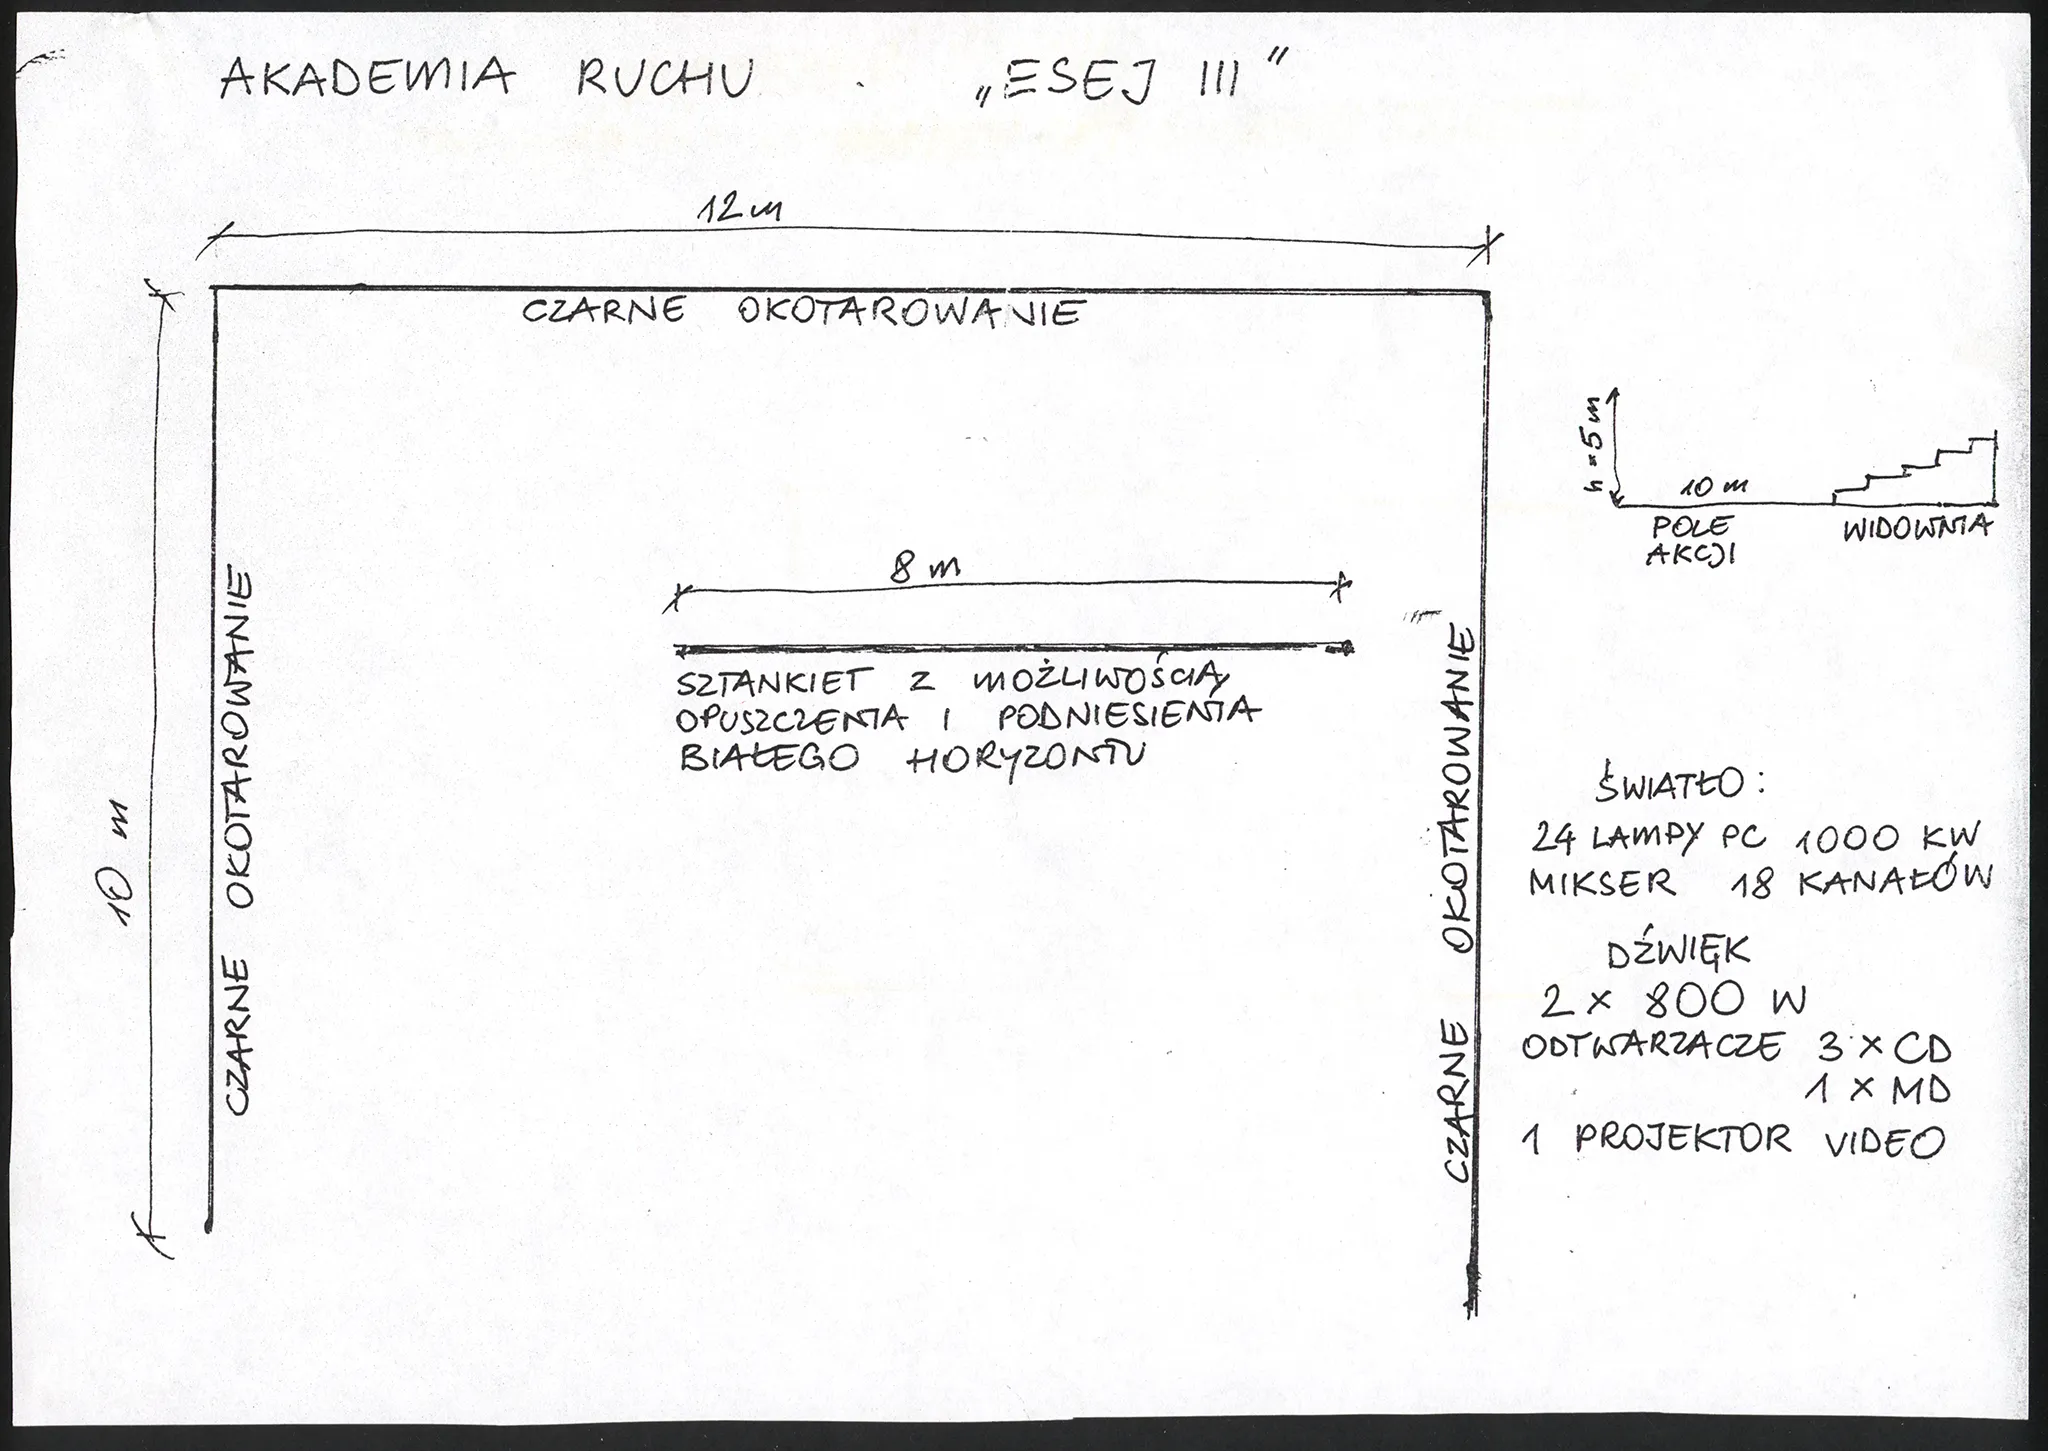 AKADEMIA RUCHU „ESEJ III"
12 m
CZARNE OKOTAROWANIE
10 m
CZARNE OKOTAROWANIE
8 m
SZTANKIET Z MOŻLIWOŚCIĄ
OPUSZCZENIA I PODNIESIENIA
BIAŁEGO HORYZONTU
CZARNE OKOTAROWANIE
h = 5 m
10 m
POLE
AKCJI
WIDOWNIA
ŚWIATŁO:
24 LAMPY PC 1000 KW
MIKSER 18 KANAŁÓW
DŹWIĘK
2 x 800 W
ODTWARZACZE 3 x CD
1 x MD
1 PROJEKTOR VIDEO